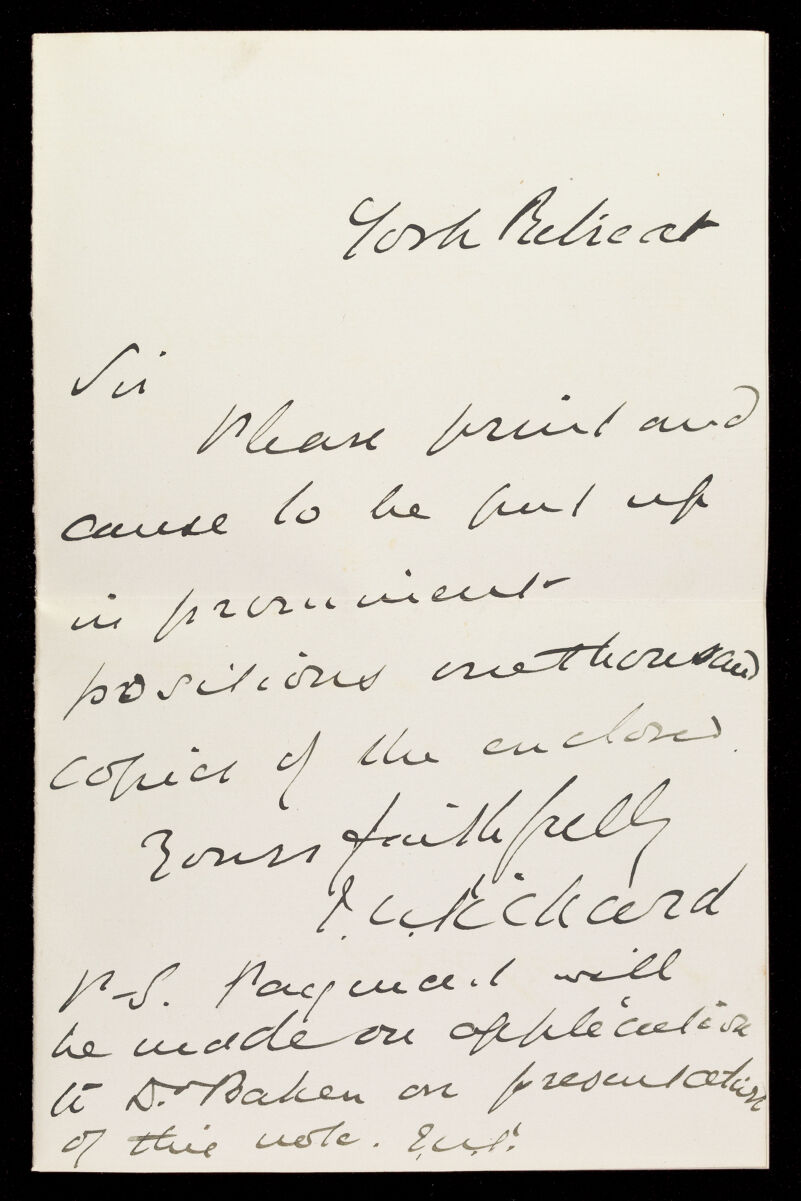 York Retreat
Sir
Please print and
cause to be put up
in prominent
positions one thousand
copies of the enclosed.
Yours faithfully
P-S. Payment will
be made on application
to Dr Baker on presentation
of this note.